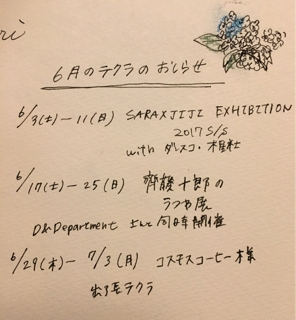 ri
6月のテクラのおしらせ
6/3(土)ー11(日) SARAXJIJI EXHIBITION
2017 S/S
with ダレスコ・
6/17(土)ー25(日) 齊藤十郎の
うつわ展
D&Department さんと同時開催
6/29(木)ー7/3(月) コスモスコーヒー様
出張テクラ